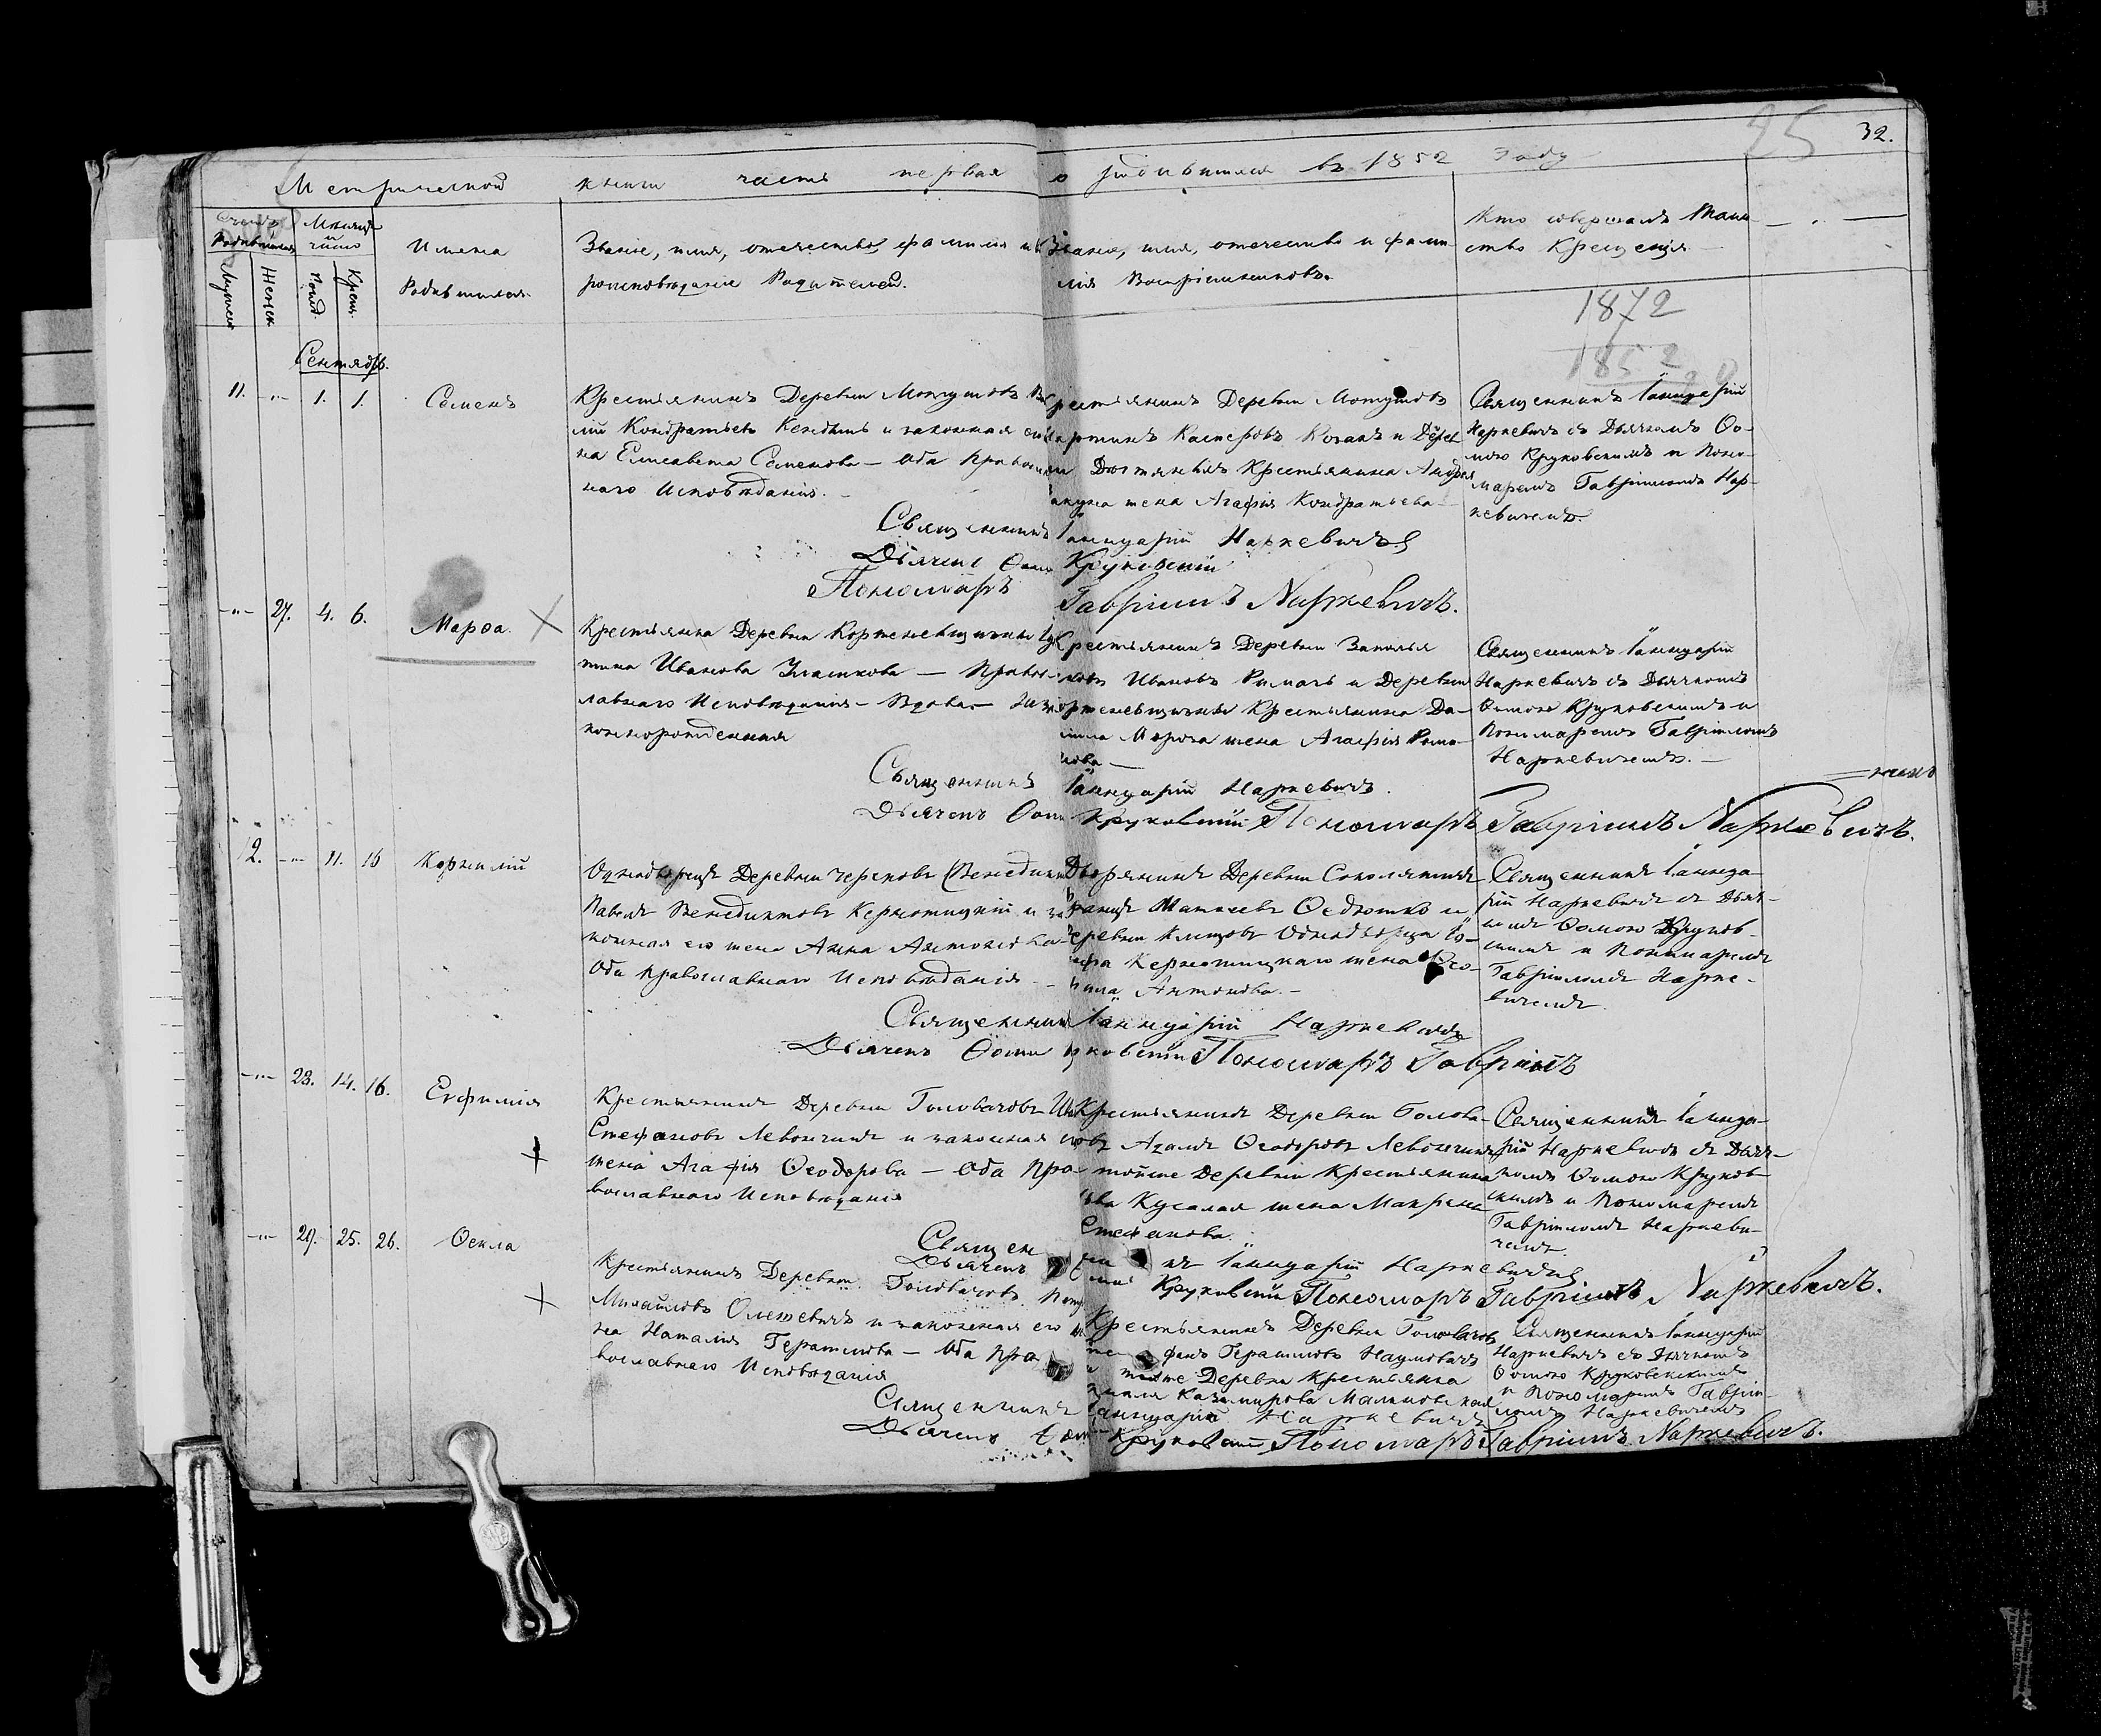 32.
25
Метрической книги часть первая о родившихся въ 1852 году
Счетъ Родившихся
Мѣсяцъ и число
Имена Родившихся.
Званіе, имя, отечество, фамилія и
роисповѣданіе Родителей.
Званіе, имя, отечество и фами-
лія Воспріемниковъ.
Кто совершалъ Таин-
ство Крещенія.
Мужск
Женск
Рожд.
Крещ.
1872
1852
Сентябр.
11. -„- 1. 1.
Семенъ
Крестьянинъ Деревни
лій Кондратьевъ и законная его
на Елисавета Семенова — Оба Православ
наго Исповѣданія.
рестьянинъ Деревни
артинъ Касперовъ и Дерев
Крестьянина Андрея
жена Агафія Кондратьева
Священникъ Іаннуарій
Наркевичъ съ Дьячкомъ Ѳо-
мою Круковскимъ и Поно-
маремъ Гавріиломъ Нар-
кевичемъ.
Священникъ Іаннуарій Наркевичъ
Дьячекъ Ѳома Круковскій
Пономаръ Гавріилъ Наркевичъ.
-„- 27. 4. 6.
Марѳа.
Крестьянка Деревни Корженевщизны
тина Иванова — Правос-
лавнаго Исповѣданія — Вдова —
коннорожденная
рестьянинъ Деревни Заполья
Ивановъ и Деревни
орженевщизны Крестьянина Да-
нила Мороза жена Агафія Рома-
нова —
Священникъ Іаннуарій
Наркевичъ съ Дьячкомъ
Ѳомою Круковскимъ и
Пономаремъ Гавріиломъ
Наркевичемъ. —
Священникъ Іаннуарій Наркевичъ.
Дьячекъ Ѳома Круковскій Пономаръ Гавріилъ Наркевичъ.
12. -„- 11. 16
Корнилій
Однодворецъ Деревни
Павелъ Венедиктовъ Керножицкій и за
конная его жена Анна Антонова
Оба Православнаго Исповѣданія —
Дворянинъ Деревни
Матѳеевъ и
еревни Однодворца Іо-
сифа Керножицкаго жена Ѳео-
Антонова. —
Священникъ Іаннуа-
рій Наркевичъ съ Дьяч-
комъ Ѳомою Круков-
скимъ и Пономаремъ
Гавріиломъ Нарке-
вичемъ.
Священникъ Іаннуарій Наркевичъ
Дьячекъ Ѳома Круковскій Пономаръ Гавріилъ
-„- 28. 14. 16.
Евфимія
Крестьянинъ Деревни Головачовъ
Стефановъ Левончикъ и законная его
жена Агафія Ѳеодорова — Оба Пра-
вославнаго Исповѣданія
Крестьянинъ Деревни Голова-
човъ Адамъ Ѳеодоровъ Левончикъ
тойже Деревни Крестьянина
жена Макрина
Стефанова.
Священникъ Іаннуа-
рій Наркевичъ съ Дьяч-
комъ Ѳомою Круков-
скимъ и Пономаремъ
Гавріиломъ Наркеви-
чемъ.
Священникъ Іаннуарій Наркевичъ
Дьячекъ Круковскій Пономаръ Гавріилъ Наркевичъ.
-„- 29. 25. 26.
Ѳекла
Крестьянинъ Деревни Головачовъ
Михайловъ и законная его
на Наталія Герасимова — Оба Пра
вославнаго Исповѣданія
Крестьянинъ Деревни Головачовъ
фанъ Герасимовъ Наумовичъ
тойже Деревни Крестьянка
Казимирова Малиновская
Священникъ Іаннуарій
Наркевичъ съ Дьячкомъ
Ѳомою Круковскимъ
и Пономаремъ Гаврiи-
ломъ Наркевичемъ
Священникъ Іаннуарій Наркевичъ
Дьячекъ Ѳома Круковскій Пономаръ Гавріилъ Наркевичъ.